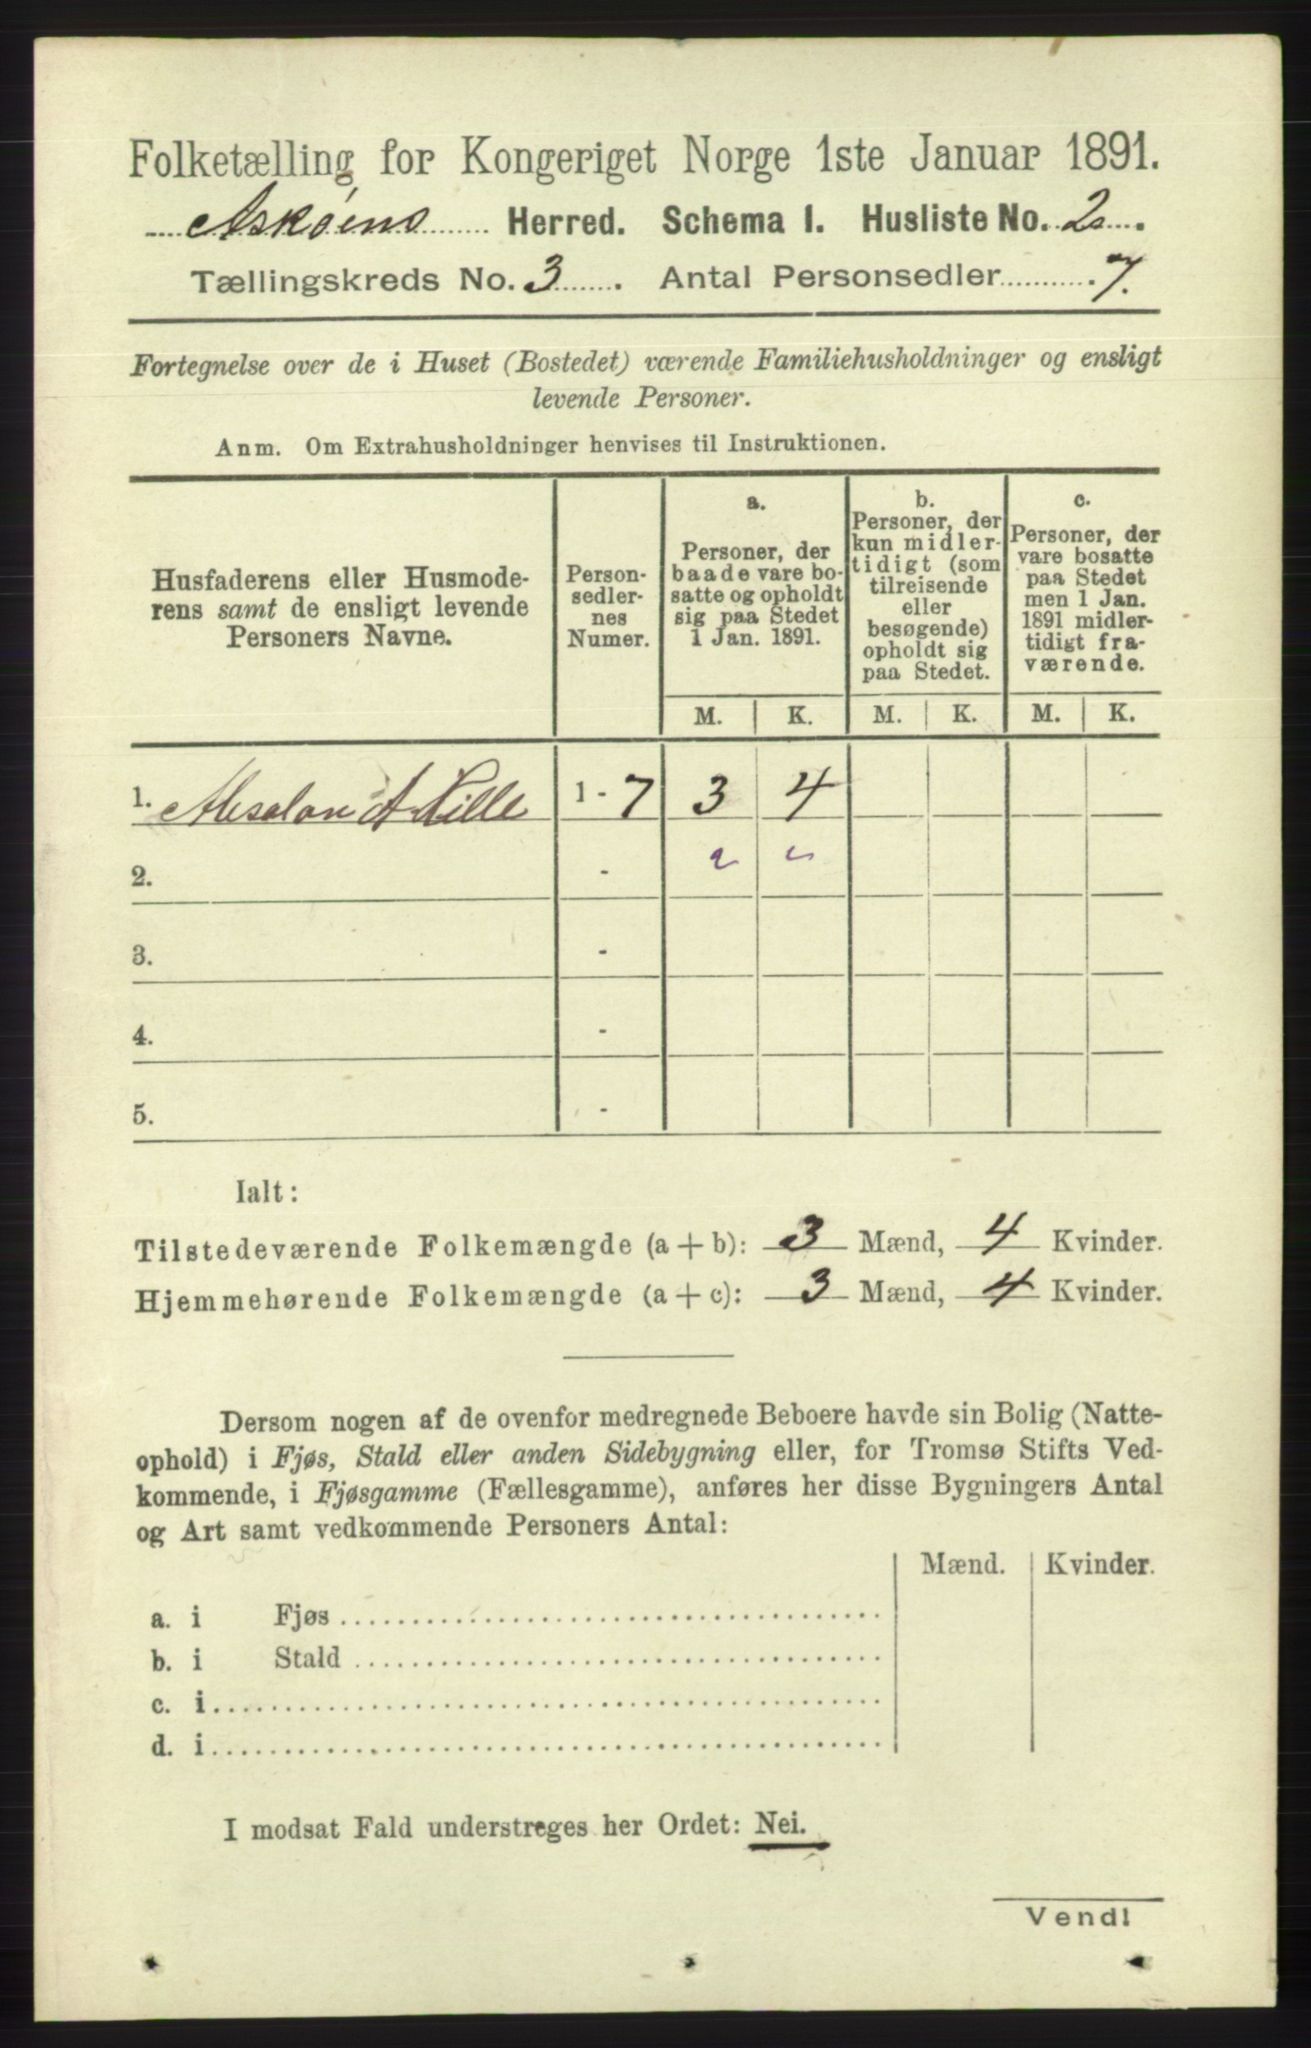 Folketælling for Kongeriget Norge 1ste Januar 1891.
Askøens Herred. Schema I. Husliste No. 2.
Tællingskreds No. 3. Antal Personsedler 7.
Fortegnelse over de i Huset (Bostedet) værende Familiehusholdninger og ensligt
levende Personer.
Anm. Om Extrahusholdninger henvises til Instruktionen.
Husfaderens eller Husmode-
rens samt de ensligt levende
Personers Navne.
Person-
sedler-
nes
Numer.
a.
Personer, der
baade vare bo-
satte og opholdt
sig paa Stedet
1 Jan. 1891.
b.
Personer, der
kun midler-
tidigt (som
tilreisende
eller
besøgende)
opholdt sig
paa Stedet.
c.
Personer, der
vare bosatte
paa Stedet
men 1 Jan.
1891 midler-
tidigt fra-
værende.
M. K. M. K. M. K.
1. Absalon A Kille 1 - 7 3 4
2. -
3. -
4. -
5. -
Ialt:
Tilstedeværende Folkemængde (a + b): 3 Mænd, 4 Kvinder.
Hjemmehørende Folkemængde (a + c): 3 Mænd, 4 Kvinder.
Dersom nogen af de ovenfor medregnede Beboere havde sin Bolig (Natte-
ophold) i Fjøs, Stald eller anden Sidebygning eller, for Tromsø Stifts Ved-
kommende, i Fjøsgamme (Fællesgamme), anføres her disse Bygningers Antal
og Art samt vedkommende Personers Antal:
Mænd. Kvinder.
a. i Fjøs
b. i Stald
c. i
d. i
I modsat Fald understreges her Ordet: Nei.
Vendl